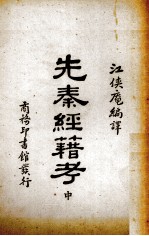 江俠庵編譯
先秦經籍考
中
商務印書館發行